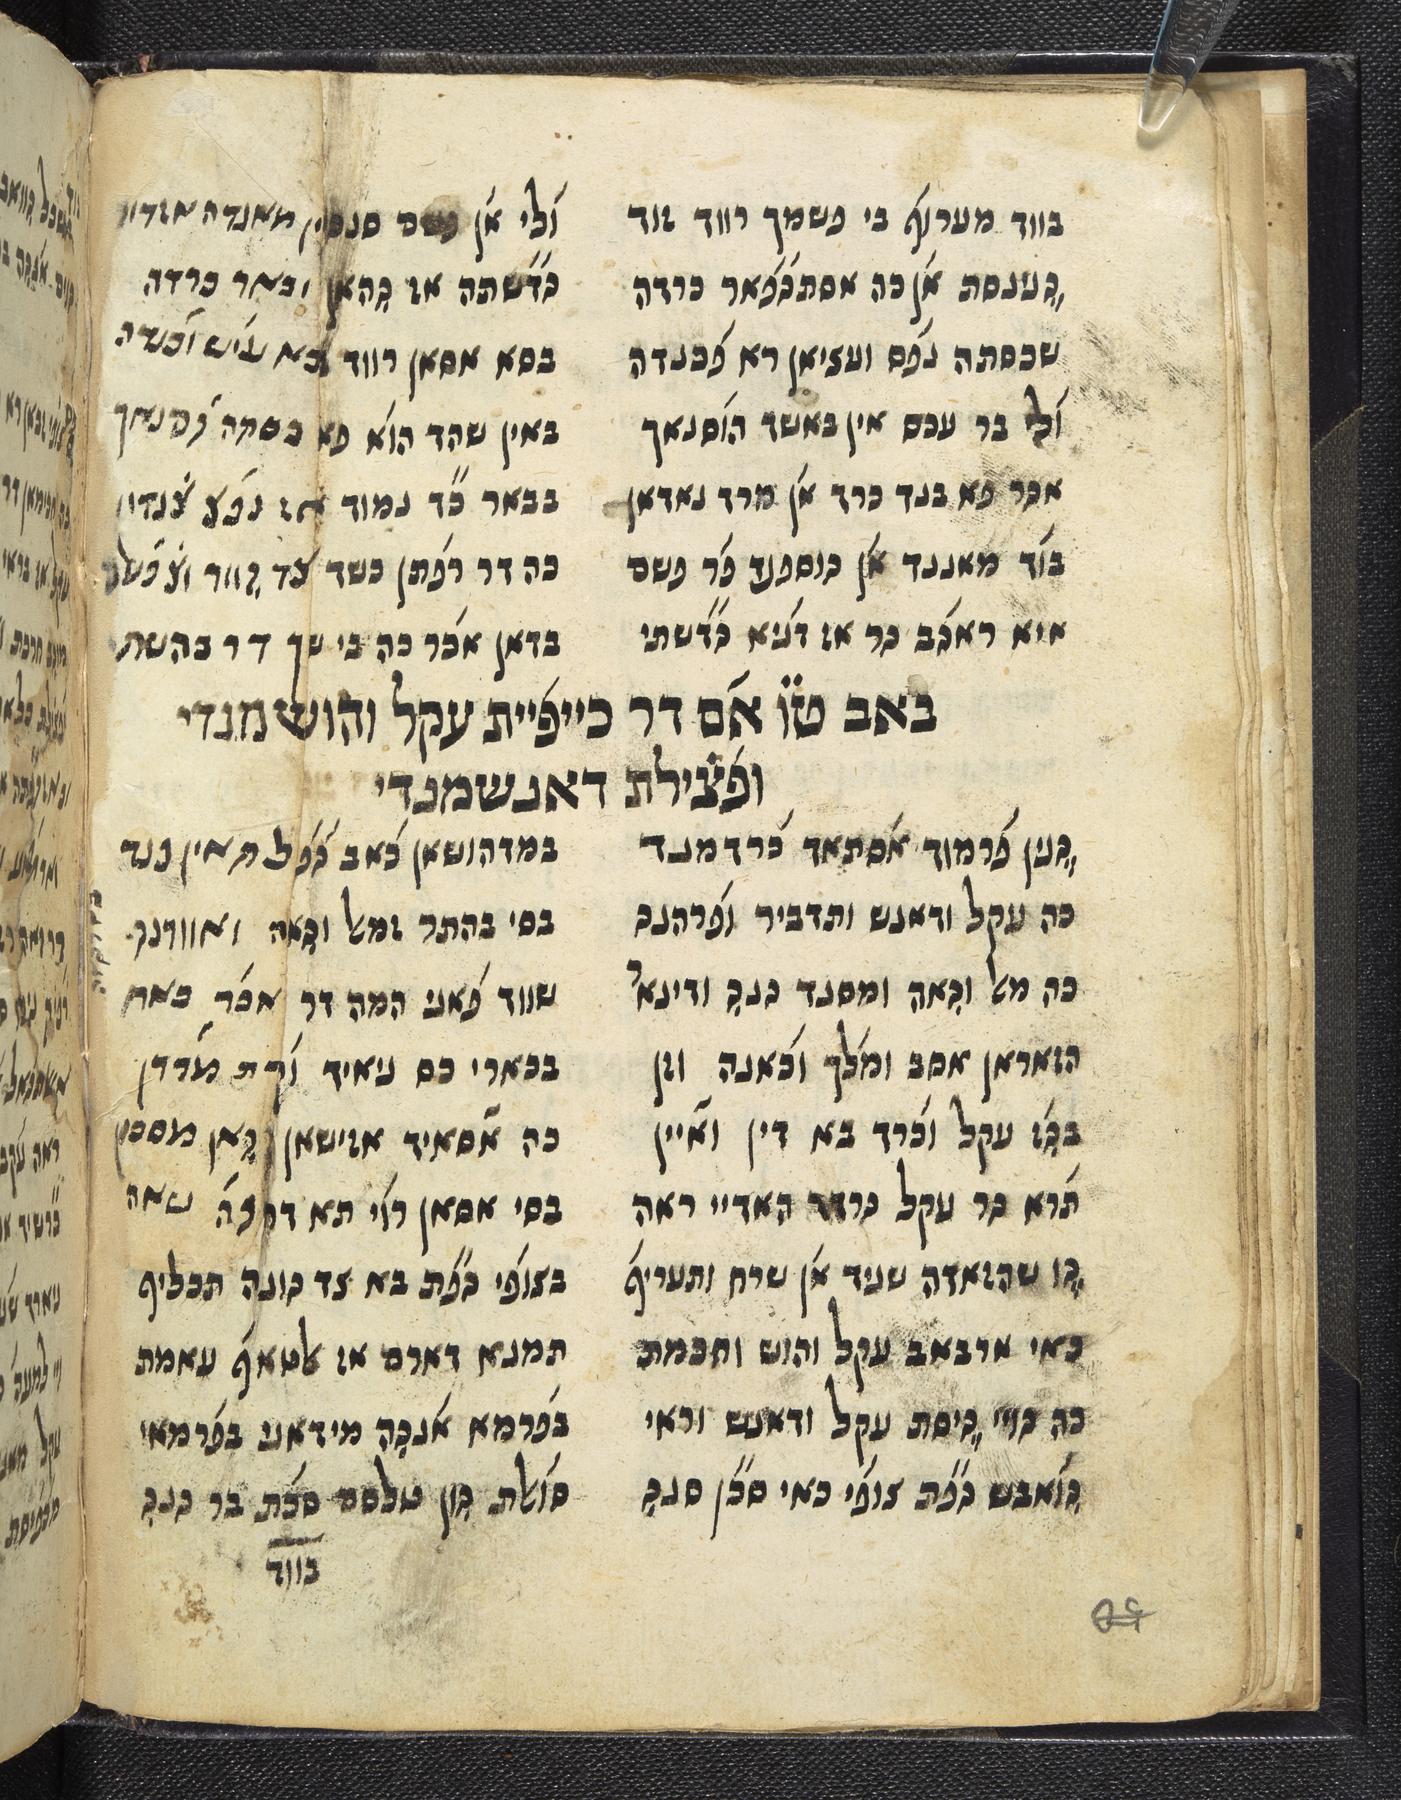 בווד מערוף בי פשמך רווד זוד ולי אן פשם סנגין מאנדה אזדור
גענסת אן כה אסתכפאר כרדה כדשתה אז גהאן וכאר כרדה
שכסתה נפס ועציאן רא פכנדה בסא אסאן רווד בא עיש וכנדה
ולי בר עכס אין באשד הוסנאך באין שהד הוא פא בסתה
אכר פא בנד כרד אן מרד נאדאן בבאר כד נמוד אז נפע
בוד מאננד אן כוספנד פר פשם כה דר רפתן כשד צד גוור
איא ראכב כר אז דניא כדשתי בדאן אכר כה בי שך דר בהשתי
באב טו אם דר כייפיית עקל והוש מנדי
ופצילת דאנשמנדי
גנין פרמוד אסתאד כרדמנד במדהושאן כאב כפלת אין פנד
כה עקל ודאנש ותדביר ופרהנג בסי בהתר זמאל וגאה ואוורנג
כה מאל וגאה ומסנד גנג ודינאר שווד פאני המה דר אכר כאר
הזאראן אסב ומלך וכאנה וזן בכארי כס ניאיד וקת מרדן
בגז עקל וכרד בא דין ואיין כה אסאיד אזישאן גאן מסכין
תרא גר עקל גרדד האדיי ראה בסי אסאן רוי תא דרגה שאה
גו שהזאדה שניד אן שרח ותעריף בצופי גפת בא צד גונה תכליף
כאי ארבאב עקל והוש וחכמת תמנא דארם אז אלטאף עאמת
כה גויי גיסת עקל ודאנש וראי בפרמא אנגה מידאני בפרמאי
גואבש גפת צופי כאי סכן סנג סואלת גון טלסם סכת בר גנג
בווד